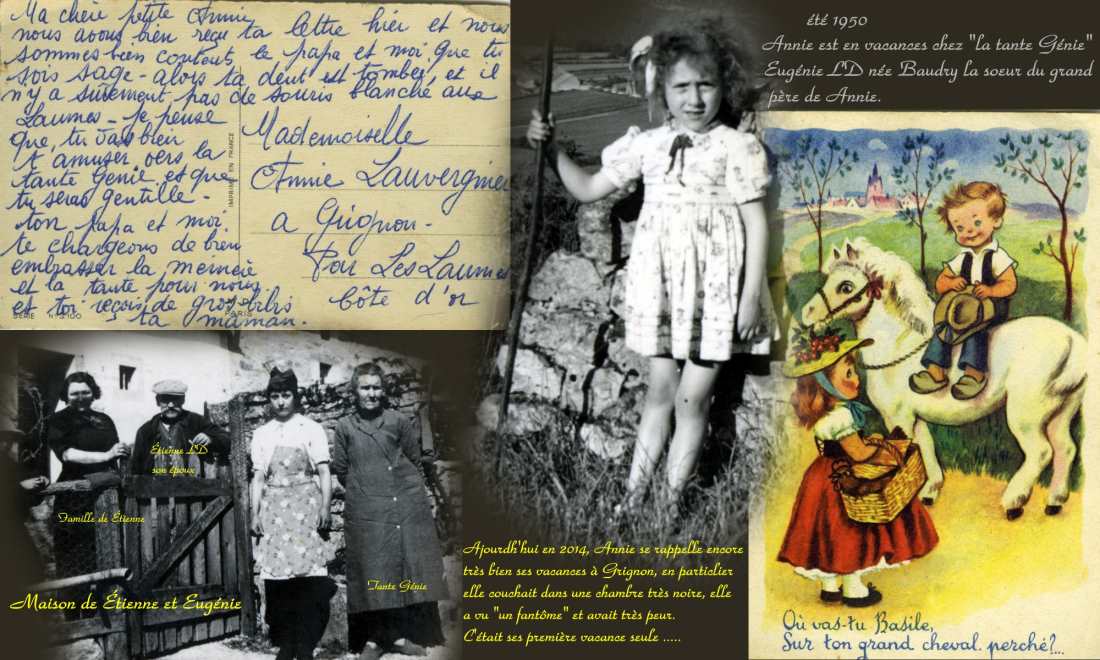 Ma chère petite Annie
nous avons bien reçu ta lettre hier et nous
sommes bien contents, le papa et moi que tu
sois sage - alors ta dent est tomber, et il
n'y a sûrement pas de souris blanche aux
Laumes - je pense
que, tu vas bien
t'amuser vers la
tante Génie et que
tu seras gentille -
ton papa et moi
te chargeons de bien
embrasser la mémère
et la tante pour nous
et toi reçois de gros
ta maman.
IMPRIMÉ EN FRANCE
Mademoiselle
Annie Lauvergnier
a Grignon -
Par Les Laumes
Côte d'or
SÉRIE N° 5.100
PARIS
été 1950
Annie est en vacances chez "la tante Génie"
Eugénie L'D née Baudry la soeur du grand
père de Annie.
Étienne L'D
son époux
Famille de Étienne
Tante Génie
Maison de Étienne et Eugénie
Ajourdh'hui en 2014, Annie se rappelle encore
très bien ses vacances à Grignon, en particlier
elle couchait dans une chambre très noire, elle
a vu "un fantôme" et avait très peur.
C'était ses première vacance seule .....
Où vas-tu Basile,
Sur ton grand cheval perché?...